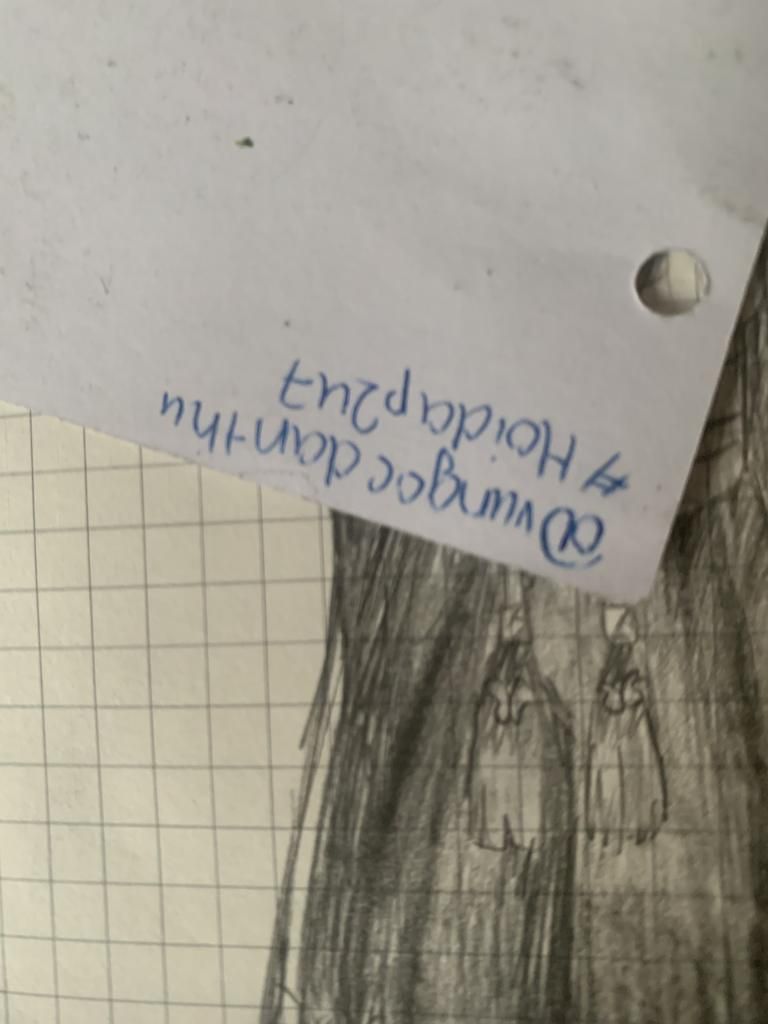 @vungocdanthu
#Hoidap247